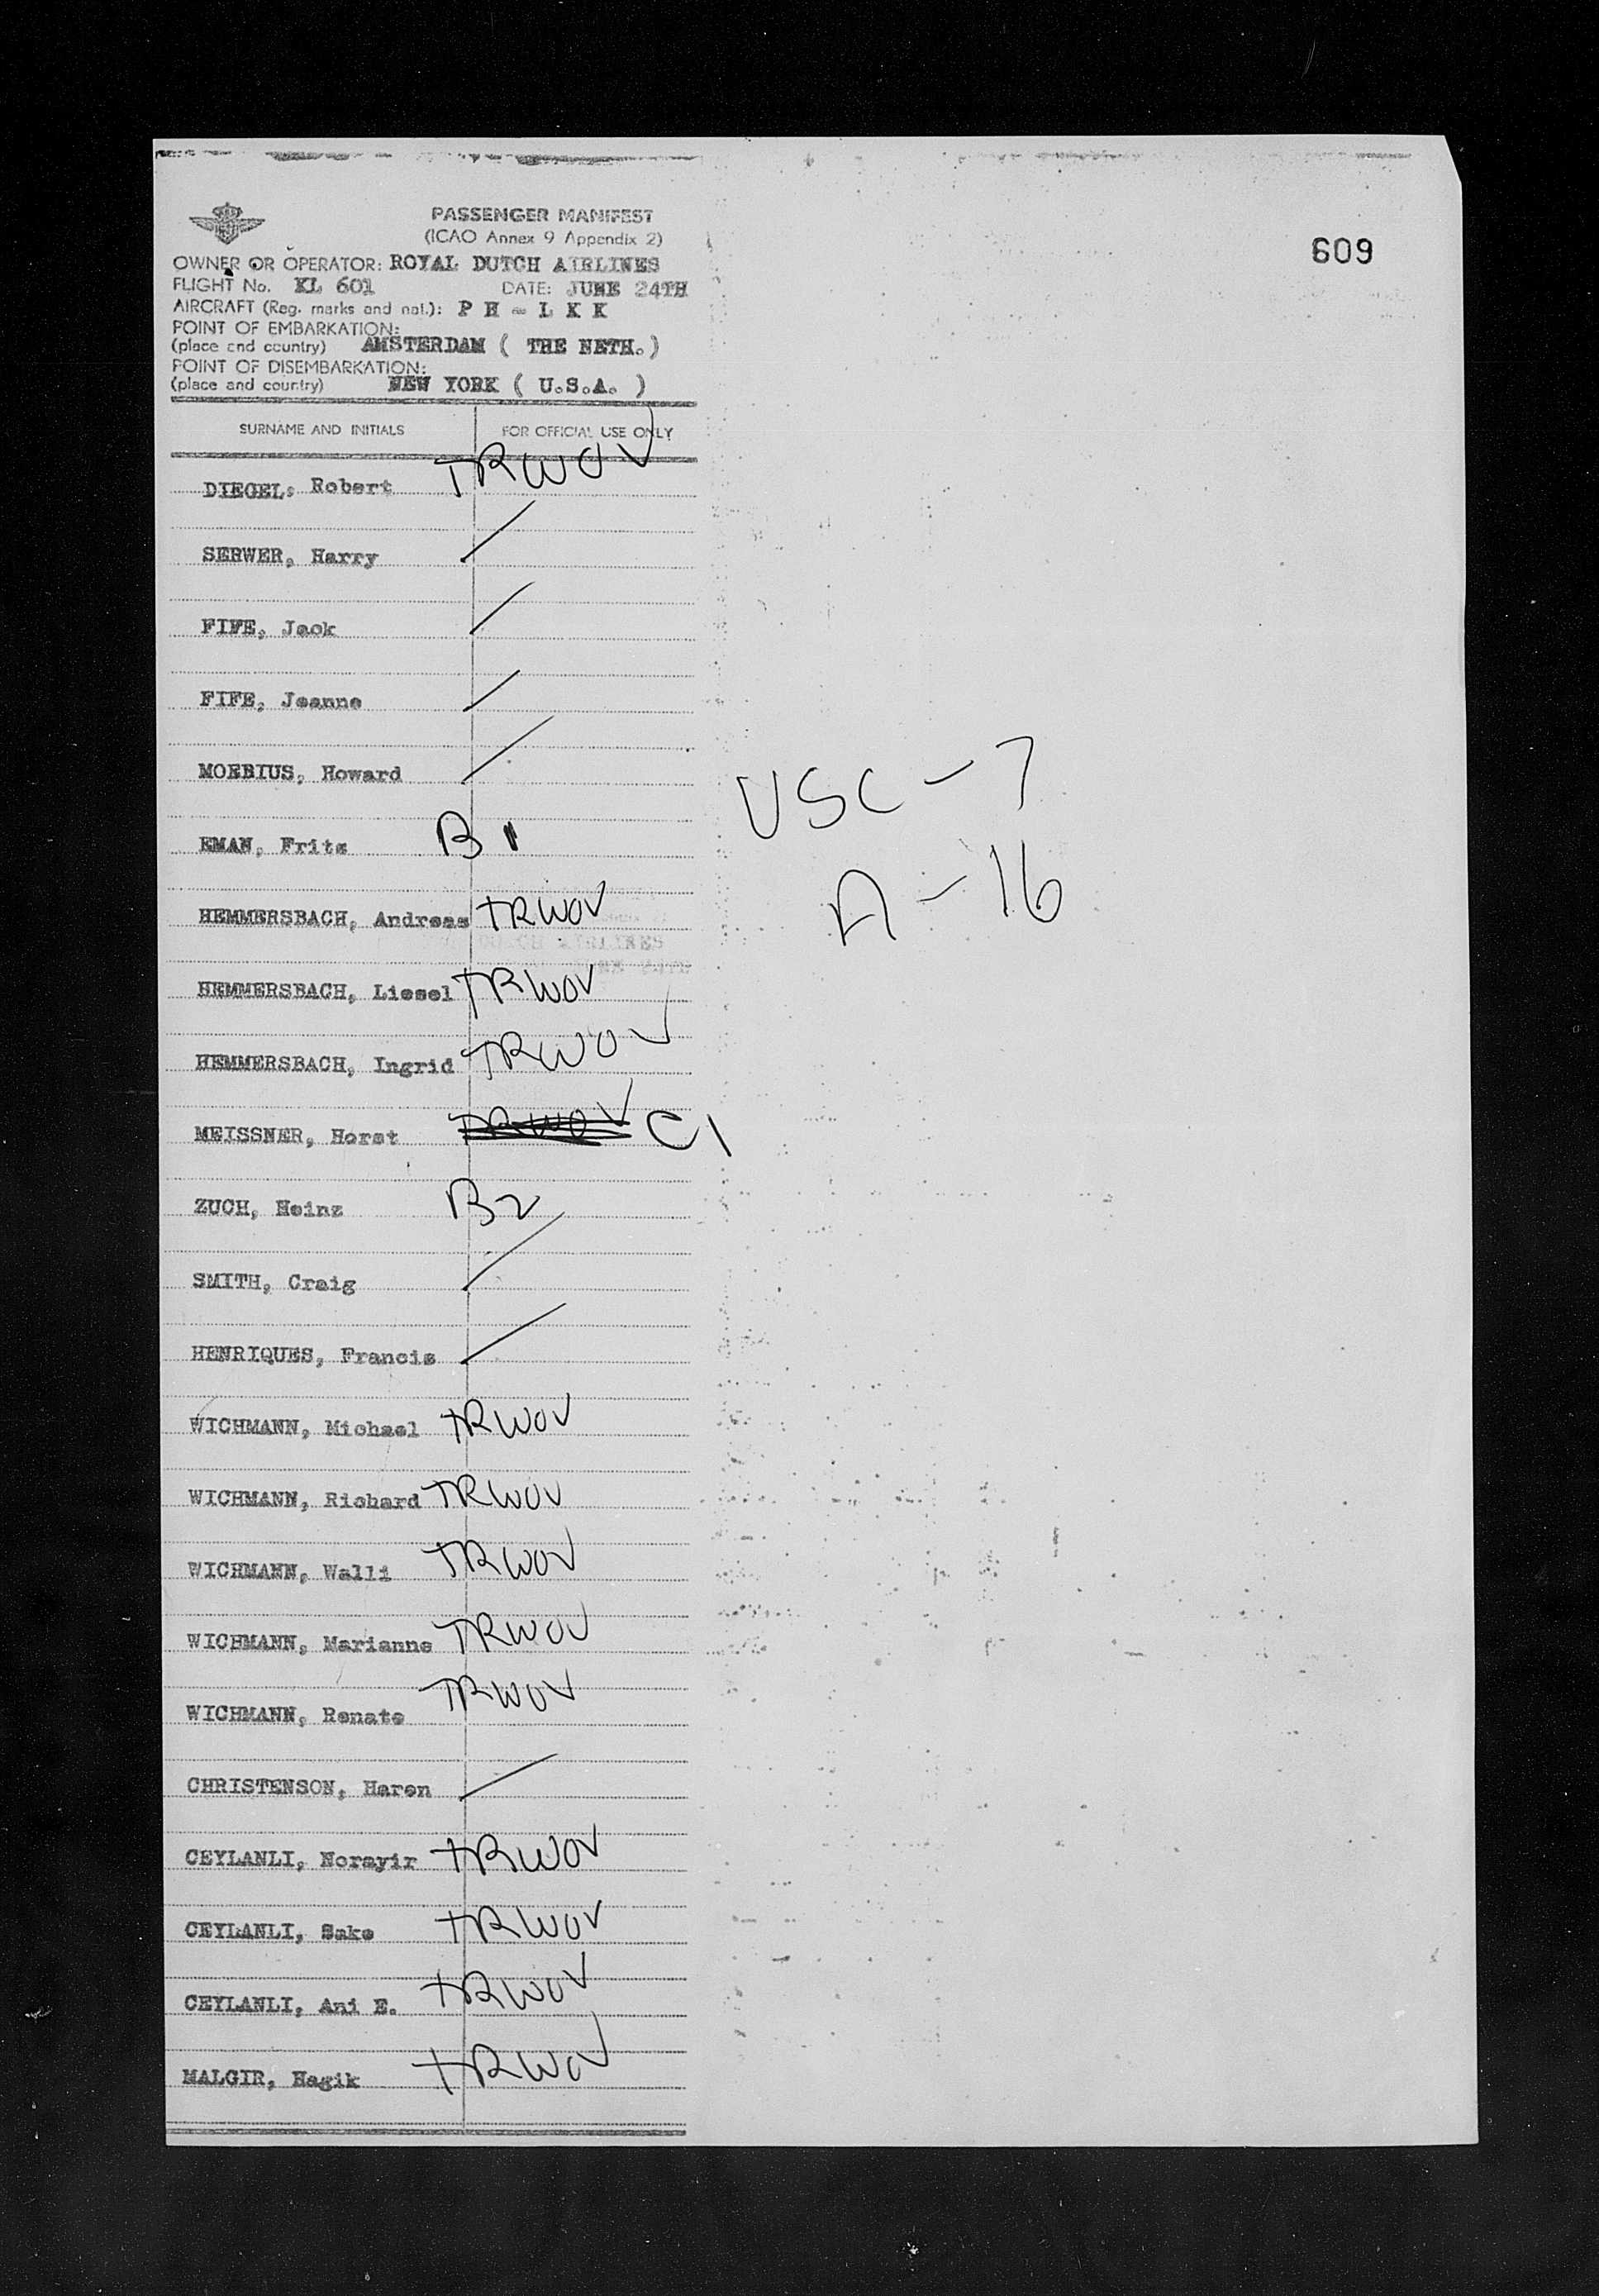 PASSENGER MANIFEST
(ICAO Annex 9 Appendix 2)
609
OWNER OR OPERATOR: ROYAL DUTCH AIRLINES
FLIGHT No. KL 601 DATE: JUNE 24TH
AIRCRAFT (Reg. marks and nat.): P H - L K K
POINT OF EMBARKATION:
(place and country) AMSTERDAM ( THE NETH. )
POINT OF DISEMBARKATION:
(place and country) NEW YORK ( U.S.A. )
SURNAME AND INITIALS FOR OFFICIAL USE ONLY
DIEGEL, Robert TRWOV
SERWER, Harry
FIFE, Jack
FIFE, Jeanne
MOEBIUS, Howard
USC - 7
EMAN, Frits B1
A - 16
HEMMERSBACH, Andreas TRWOV
HEMMERSBACH, Liesel TRWOV
HEMMERSBACH, Ingrid TRWOV
MEISSNER, Horst TRWOV C1
ZUCH, Heinz B2
SMITH, Craig
HENRIQUES, Francis
WICHMANN, Michael TRWOV
WICHMANN, Richard TRWOV
WICHMANN, Walli TRWOV
WICHMANN, Marianne TRWOV
WICHMANN, Renate TRWOV
CHRISTENSON, Haren
CEYLANLI, Norayir TRWOV
CEYLANLI, Sake TRWOV
CEYLANLI, Ani E. TRWOV
MALGIR, Hagik TRWOV